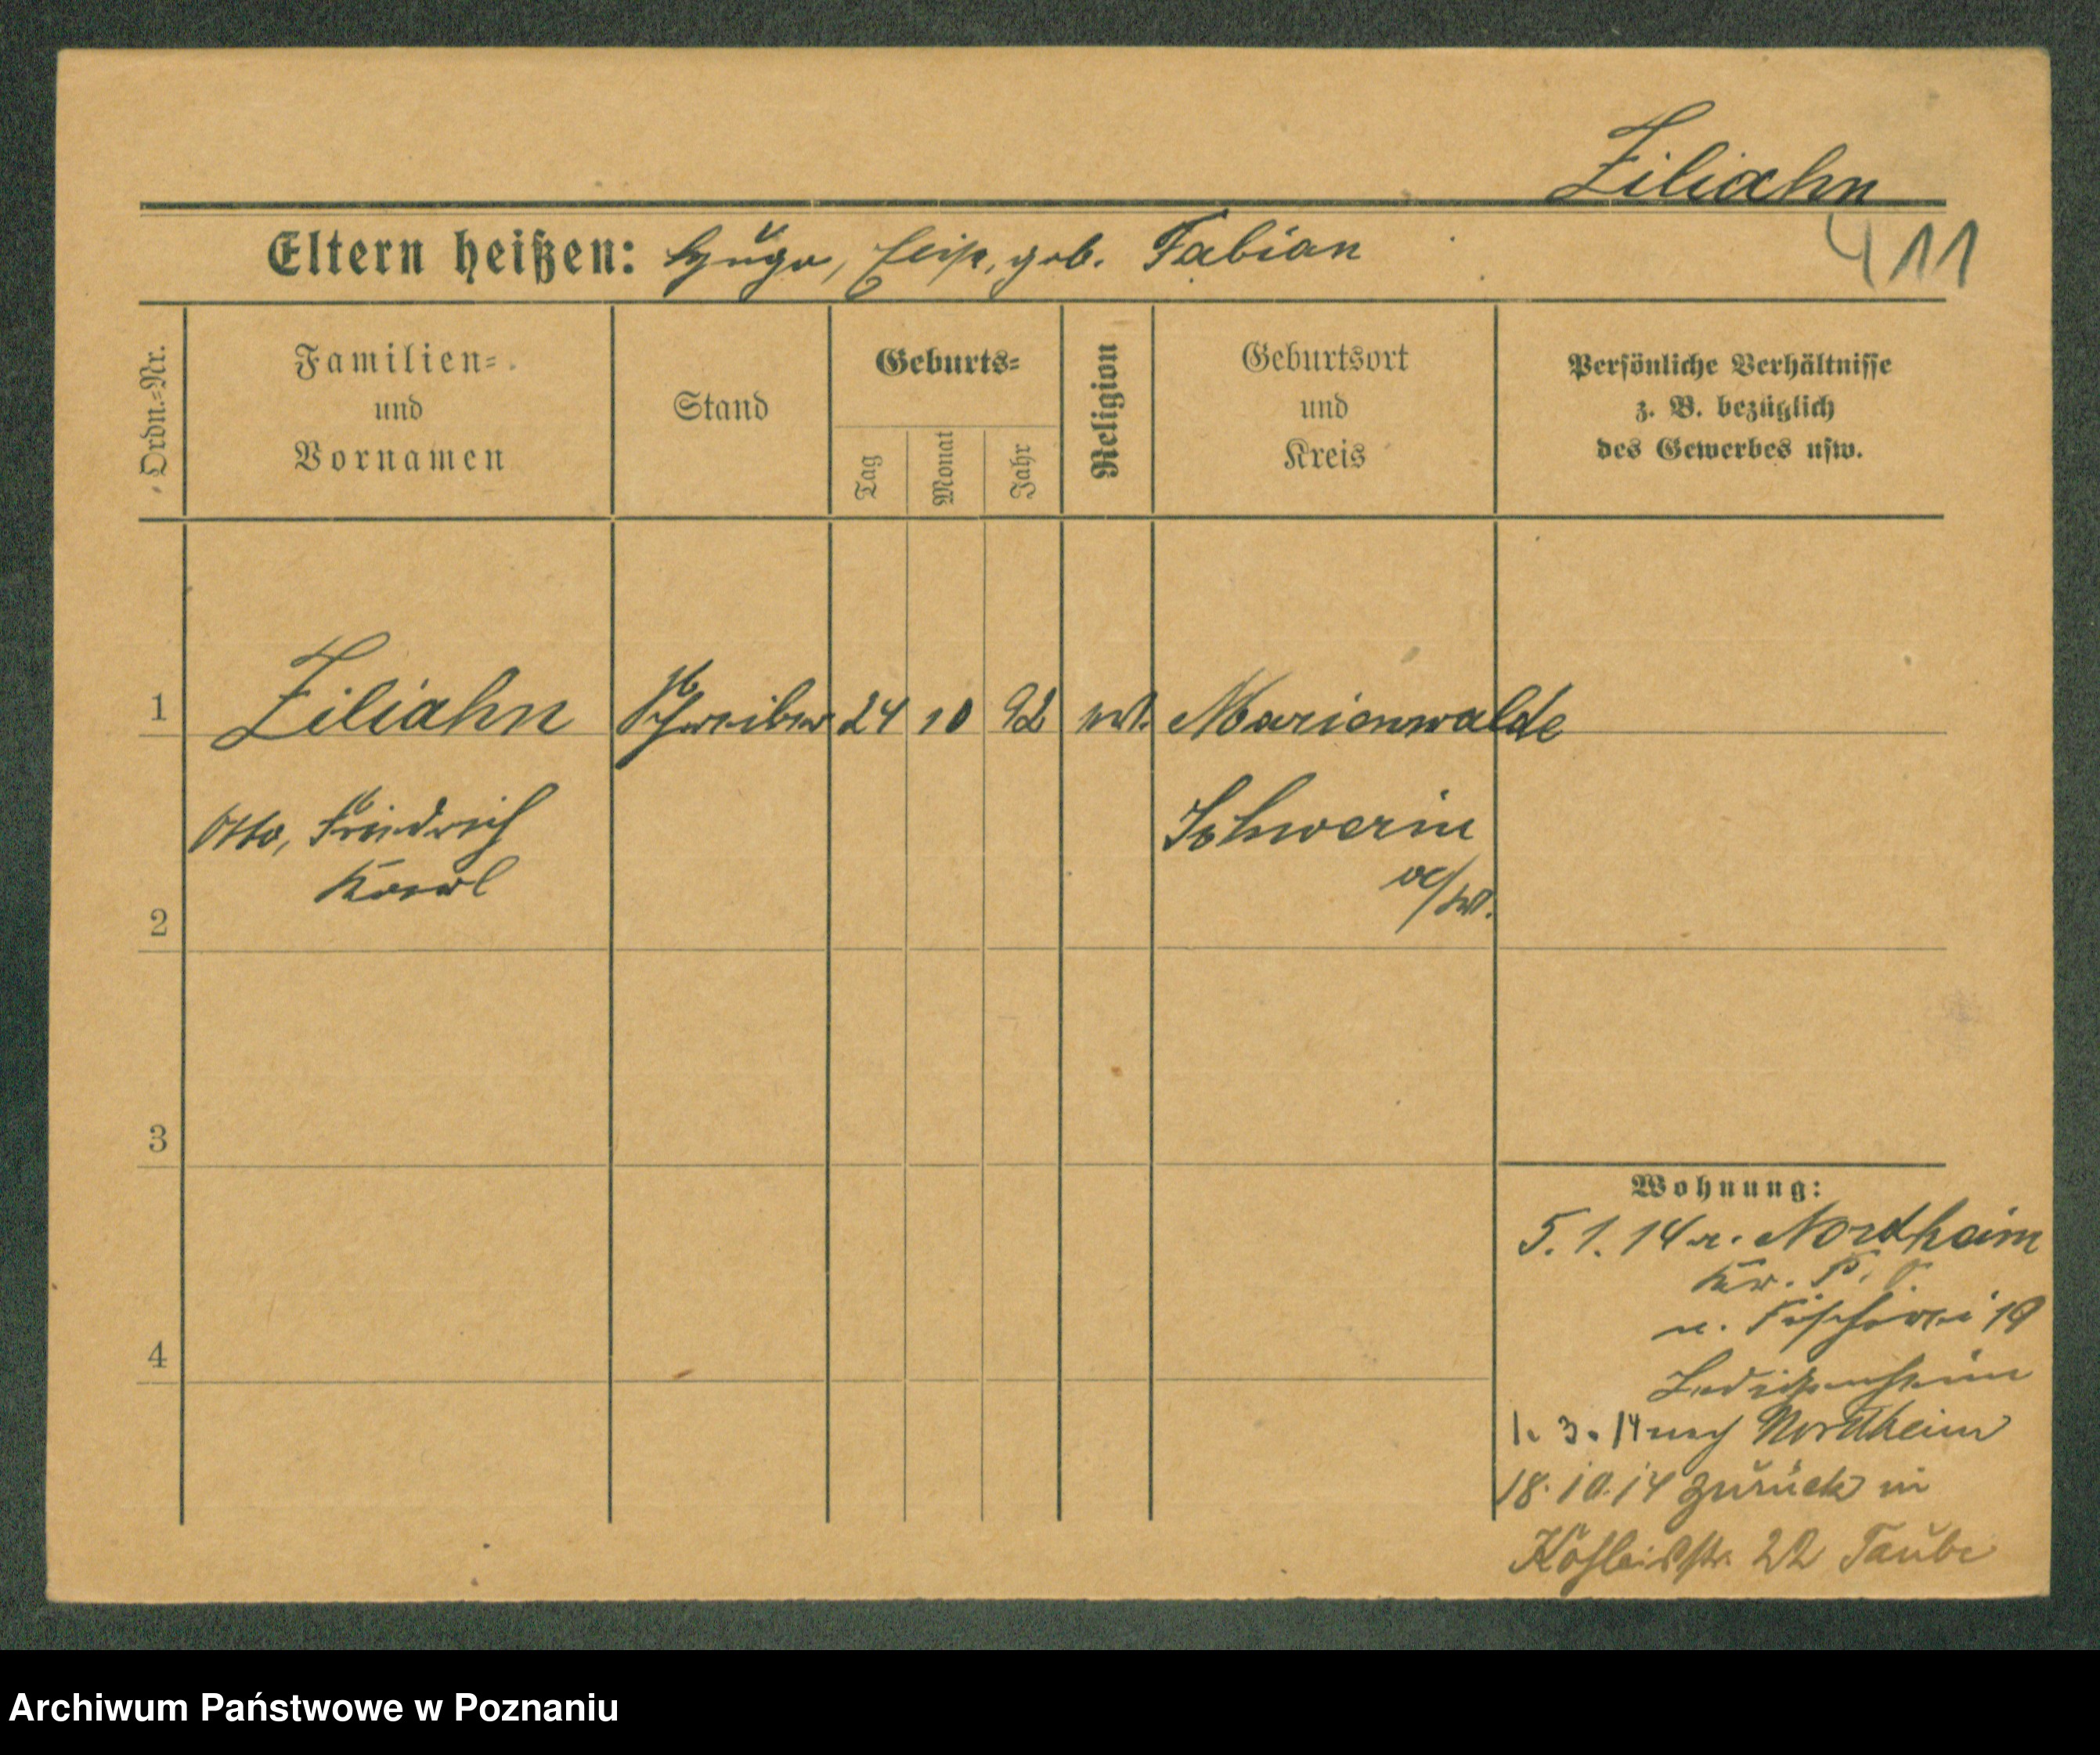 Ziliahn
411
Eltern heißen: Hugo, Elise, geb. Fabian
Ordn.-Nr.
Familien-
und
Vornamen
Stand
Geburts-
Tag
Monat
Jahr
Religion
Geburtsort
und
Kreis
Persönliche Verhältnisse
z. B. bezüglich
des Gewerbes usw.
1 Ziliahn Schreiber 24 10 92 ev. Marienwalde
Otto, Friedrich
Karl
Schwerin
a/W.
2
3
4
Wohnung:
5. 1. 14 v. Nordheim
Kr. P.
n. Fischerei 19
1. 3. 14 nach Nordheim
18. 10. 14 zurück in
22 Taube
Archiwum Państwowe w Poznaniu